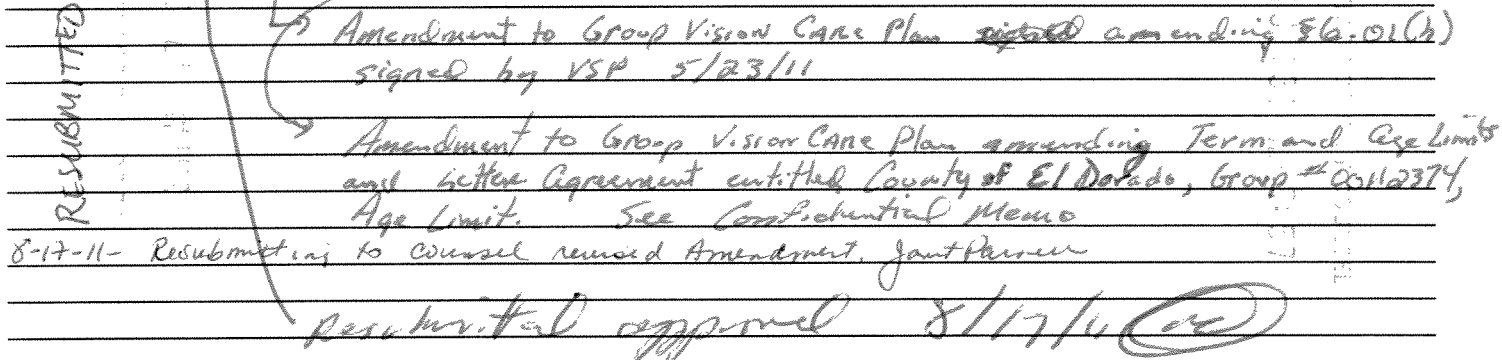 RESUBMITTED
Amendment to Group Vision Care Plan amending §6.01(h)
signed by VSP 5/23/11
Amendment to Group Vision Care Plan amending Term and Age Limits
and Letter Agreement entitled County of El Dorado, Group # 00112374,
Age Limit. See Confidential Memo
8-17-11- Resubmitting to counsel revised Amendment.
Resubmittal approved 8/17/11